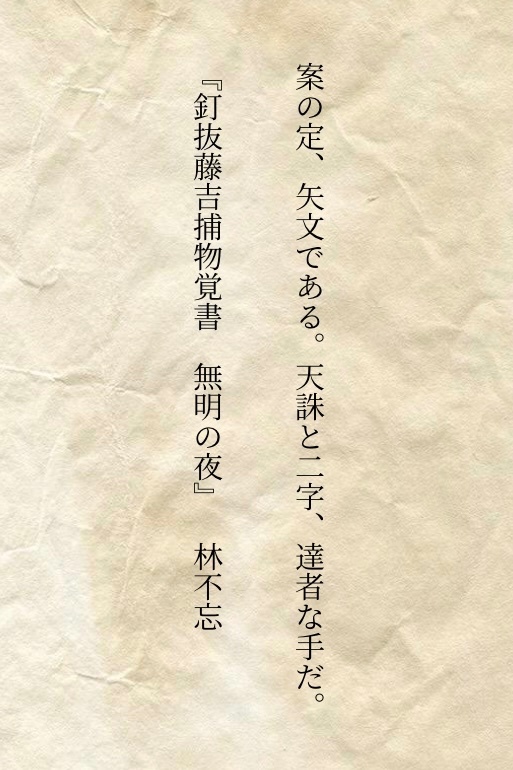 案の定、矢文である。天誅と二字、達者な手だ。
『釘抜藤吉捕物覚書　無明の夜』　林不忘